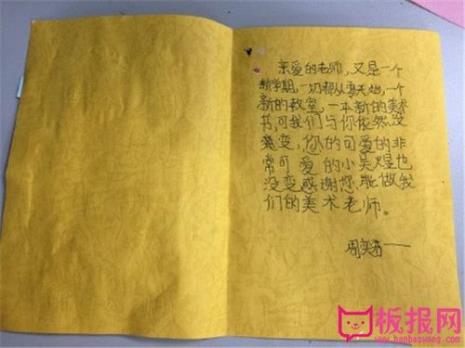 亲爱的老师，又是一个
新学期，一切都从零开始，一个
新的教室，一本新的美术
书，可我们与你依然没
变，您的可爱的非
常可爱的小吴煜也
没变感谢您能做我
们的美术老师。
板报网
www.banbaowang.com